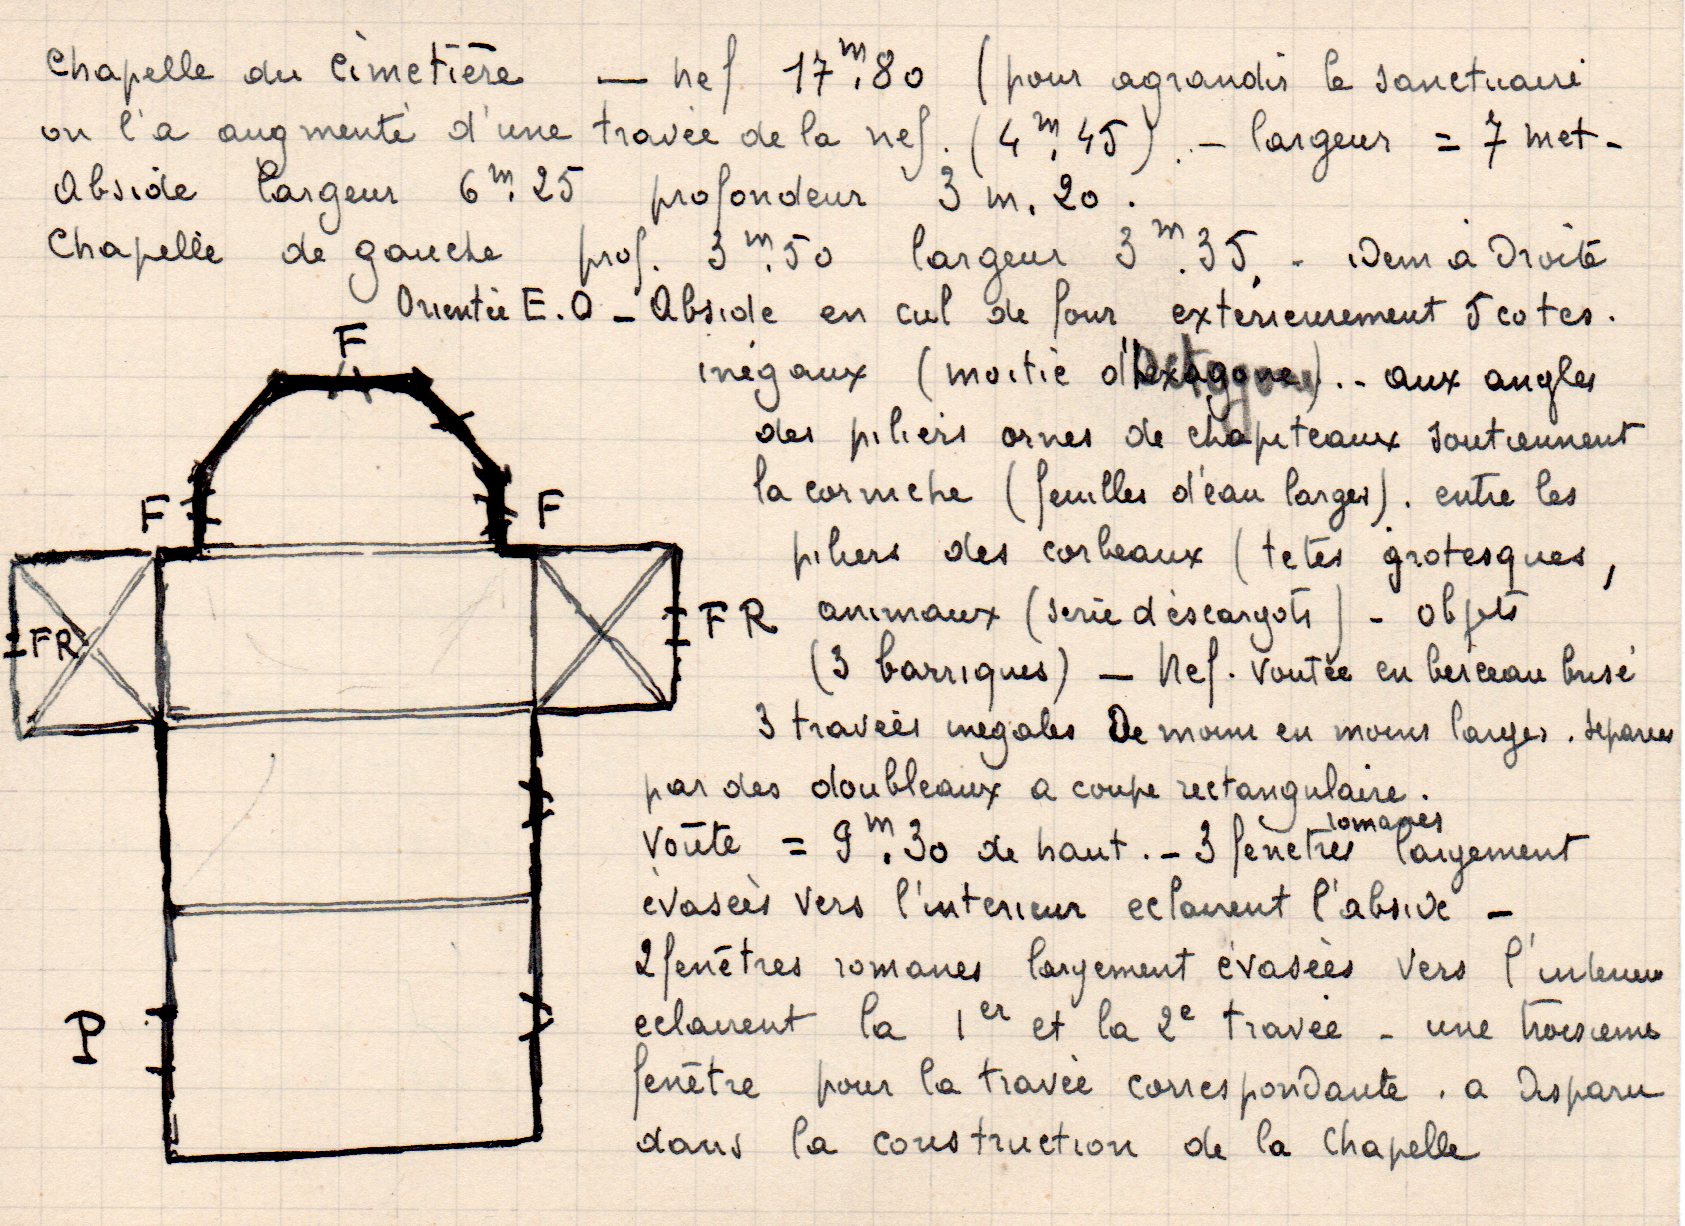 Chapelle du Cimetière — nef 17m.80 (pour agrandir le sanctuaire
on l'a augmenté d'une travée de la nef. (4m.45) . — largeur = 7 met -
Abside largeur 6m.25 profondeur 3 m. 20 .
Chapelle de gauche prof. 3m.50 largeur 3m.35. - idem à Droite
Orientée E.O - Abside en cul de four, extérieurement 5 cotes.
F
inégaux (moitié . - aux angles
des piliers ornés de chapiteaux soutiennent
la corniche (feuilles d'eau larges). entre les
F F
piliers des corbeaux (têtes grotesques,
FR FR animaux (serie d'escargots) - objets
(3 barriques) — Nef. voutée en berceau brisé
3 travées inégales De moins en moins larges. séparées
par des doubleaux a coupe rectangulaire.
Voûte = 9m.30 de haut. - 3 fenêtres romanes largement
évasées vers l'interieur eclairent l'abside -
2 fenêtres romanes largement évasées vers l'interieur
P
eclairent la 1er et la 2e travée - une troisieme
fenêtre pour la travée correspondante . a Disparu
dans la construction de la Chapelle